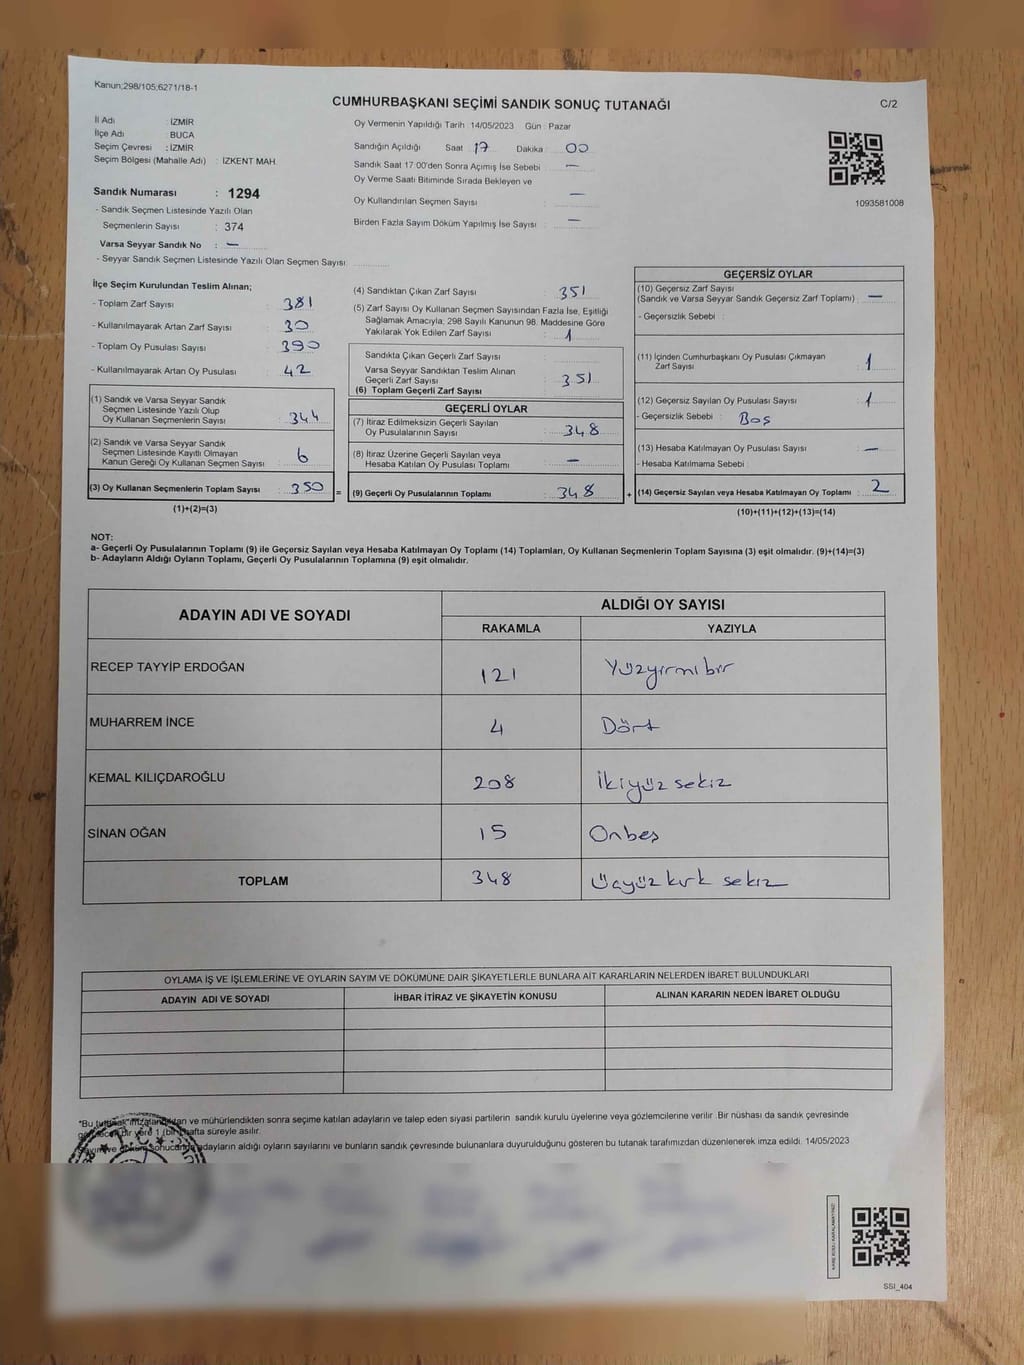 Kanun;298/105;6271/18-1
CUMHURBAŞKANI SEÇİMİ SANDIK SONUÇ TUTANAĞI
C/2
İl Adı : İZMİR
İlçe Adı : BUCA
Seçim Çevresi : İZMİR
Seçim Bölgesi (Mahalle Adı) : İZKENT MAH.
Sandık Numarası : 1294
- Sandık Seçmen Listesinde Yazılı Olan
Seçmenlerin Sayısı : 374
Varsa Seyyar Sandık No : —
- Seyyar Sandık Seçmen Listesinde Yazılı Olan Seçmen Sayısı:
Oy Vermenin Yapıldığı Tarih : 14/05/2023 Gün : Pazar
Sandığın Açıldığı Saat : 17 Dakika : 00
Sandık Saat 17:00'den Sonra Açımış İse Sebebi : —
Oy Verme Saati Bitiminde Sırada Bekleyen ve
Oy Kullandırılan Seçmen Sayısı : —
Birden Fazla Sayım Döküm Yapılmış İse Sayısı : —
1093581008
İlçe Seçim Kurulundan Teslim Alınan;
- Toplam Zarf Sayısı : 381
- Kullanılmayarak Artan Zarf Sayısı : 30
- Toplam Oy Pusulası Sayısı : 390
- Kullanılmayarak Artan Oy Pusulası : 42
(1) Sandık ve Varsa Seyyar Sandık
Seçmen Listesinde Yazılı Olup
Oy Kullanan Seçmenlerin Sayısı : 344
(2) Sandık ve Varsa Seyyar Sandık
Seçmen Listesinde Kayıtlı Olmayan
Kanun Gereği Oy Kullanan Seçmen Sayısı : 6
(3) Oy Kullanan Seçmenlerin Toplam Sayısı : 350
(1)+(2)=(3)
=
(4) Sandıktan Çıkan Zarf Sayısı : 351
(5) Zarf Sayısı Oy Kullanan Seçmen Sayısından Fazla İse, Eşitliği
Sağlamak Amacıyla; 298 Sayılı Kanunun 98. Maddesine Göre
Yakılarak Yok Edilen Zarf Sayısı : 1
Sandıkta Çıkan Geçerli Zarf Sayısı :
Varsa Seyyar Sandıktan Teslim Alınan
Geçerli Zarf Sayısı : 351
(6) Toplam Geçerli Zarf Sayısı
GEÇERLİ OYLAR
(7) İtiraz Edilmeksizin Geçerli Sayılan
Oy Pusulalarının Sayısı : 348
(8) İtiraz Üzerine Geçerli Sayılan veya
Hesaba Katılan Oy Pusulası Toplamı : —
(9) Geçerli Oy Pusulalarının Toplamı : 348
+
GEÇERSİZ OYLAR
(10) Geçersiz Zarf Sayısı
(Sandık ve Varsa Seyyar Sandık Geçersiz Zarf Toplamı) : —
- Geçersizlik Sebebi :
(11) İçinden Cumhurbaşkanı Oy Pusulası Çıkmayan
Zarf Sayısı : 1
(12) Geçersiz Sayılan Oy Pusulası Sayısı : 1
- Geçersizlik Sebebi : Boş
(13) Hesaba Katılmayan Oy Pusulası Sayısı : —
- Hesaba Katılmama Sebebi :
(14) Geçersiz Sayılan veya Hesaba Katılmayan Oy Toplamı : 2
(10)+(11)+(12)+(13)=(14)
NOT:
a- Geçerli Oy Pusulalarının Toplamı (9) ile Geçersiz Sayılan veya Hesaba Katılmayan Oy Toplamı (14) Toplamları, Oy Kullanan Seçmenlerin Toplam Sayısına (3) eşit olmalıdır. (9)+(14)=(3)
b- Adayların Aldığı Oyların Toplamı, Geçerli Oy Pusulalarının Toplamına (9) eşit olmalıdır.
ADAYIN ADI VE SOYADI
ALDIĞI OY SAYISI
RAKAMLA YAZIYLA
RECEP TAYYİP ERDOĞAN 121 Yüzyirmibir
MUHARREM İNCE 4 Dört
KEMAL KILIÇDAROĞLU 208 İkiyüz sekiz
SİNAN OĞAN 15 Onbeş
TOPLAM 348 Üçyüz kırk sekiz
OYLAMA İŞ VE İŞLEMLERİNE VE OYLARIN SAYIM VE DÖKÜMÜNE DAİR ŞİKAYETLERLE BUNLARA AİT KARARLARIN NELERDEN İBARET BULUNDUKLARI
ADAYIN ADI VE SOYADI İHBAR İTİRAZ VE ŞİKAYETİN KONUSU ALINAN KARARIN NEDEN İBARET OLDUĞU
*Bu tutanak imzalandıktan ve mühürlendikten sonra seçime katılan adayların ve talep eden siyasi partilerin sandık kurulu üyelerine veya gözlemcilerine verilir. Bir nüshası da sandık çevresinde
bir yere 1 (bir) hafta süreyle asılır.
adayların aldığı oyların sayılarını ve bunların sandık çevresinde bulunanlara duyurulduğunu gösteren bu tutanak tarafımızdan düzenlenerek imza edildi. 14/05/2023
SSI_404